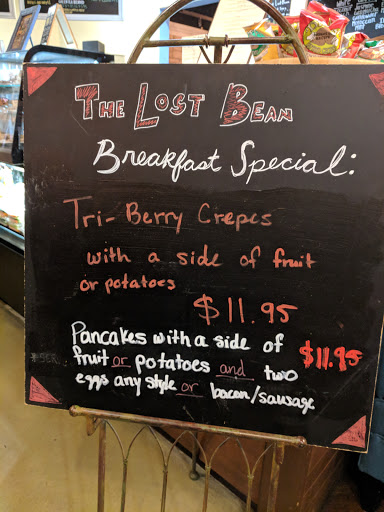 THE LOST BEAN
Breakfast Special:
Tri-Berry Crepes
with a side of fruit
or potatoes
$11.95
Pancakes with a side of $11.95
fruit or potatoes and two
eggs any style or bacon/sausage